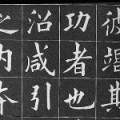 彼竭其
功者也
沼咸引
之内本